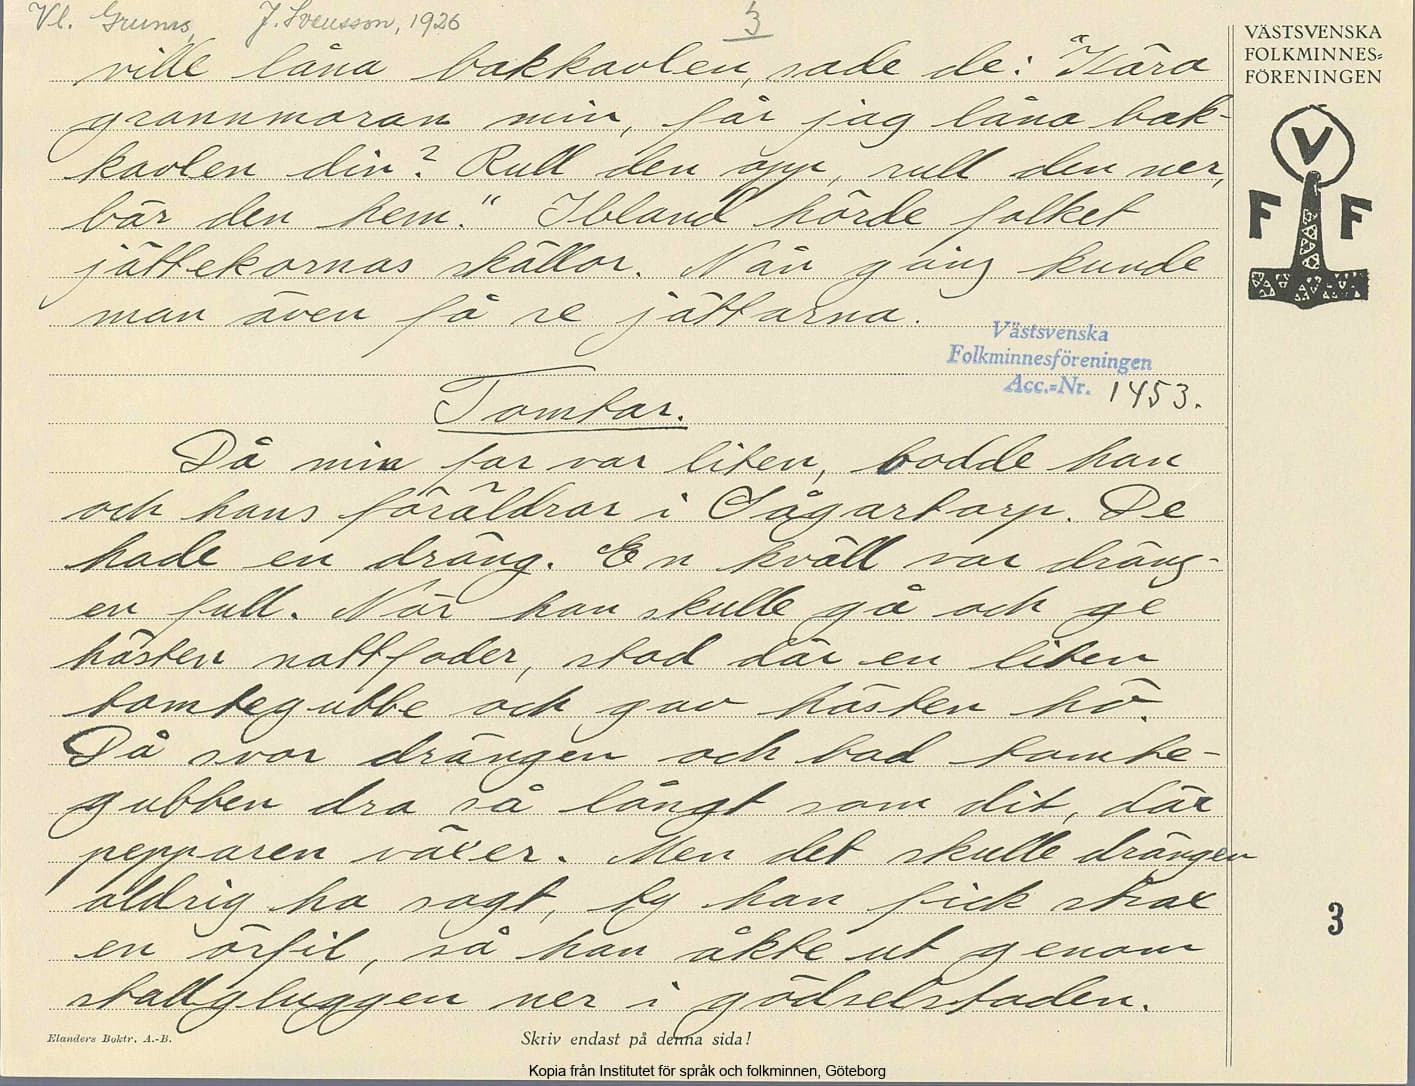 Vl. Grums, J. Svensson, 1926
3
ville låna bakkavlen, sade de: "Kära
grannmoran min, får jag låna bak-
kavlen din? Rull den opp, rull den ner,
bär den hem." Ibland hörde folket
jättekornas skällor. Nån gång kunde
man även få se jättarna.
Tomtar.
Då min far var liten, bodde han
och hans föräldrar i Sågartorp. De
hade en dräng. En kväll var dräng-
en full. När han skulle gå och ge
hästen nattfoder, stod där en liten
tomtegubbe och gav hästen hö.
Då svor drängen och bad tomte-
gubben dra så långt som dit, där
pepparen växer. Men det skulle drängen
aldrig ha sagt, ty han fick strax
en örfil, så han åkte ut genom
stallgluggen ner i gödselstaden.
VÄSTSVENSKA
FOLKMINNES-
FÖRENINGEN
V
F F
Västsvenska
Folkminnesföreningen
Acc.-Nr. 1453.
3
Elanders Boktr. A.-B.
Skriv endast på denna sida!
Kopia från Institutet för språk och folkminnen, Göteborg